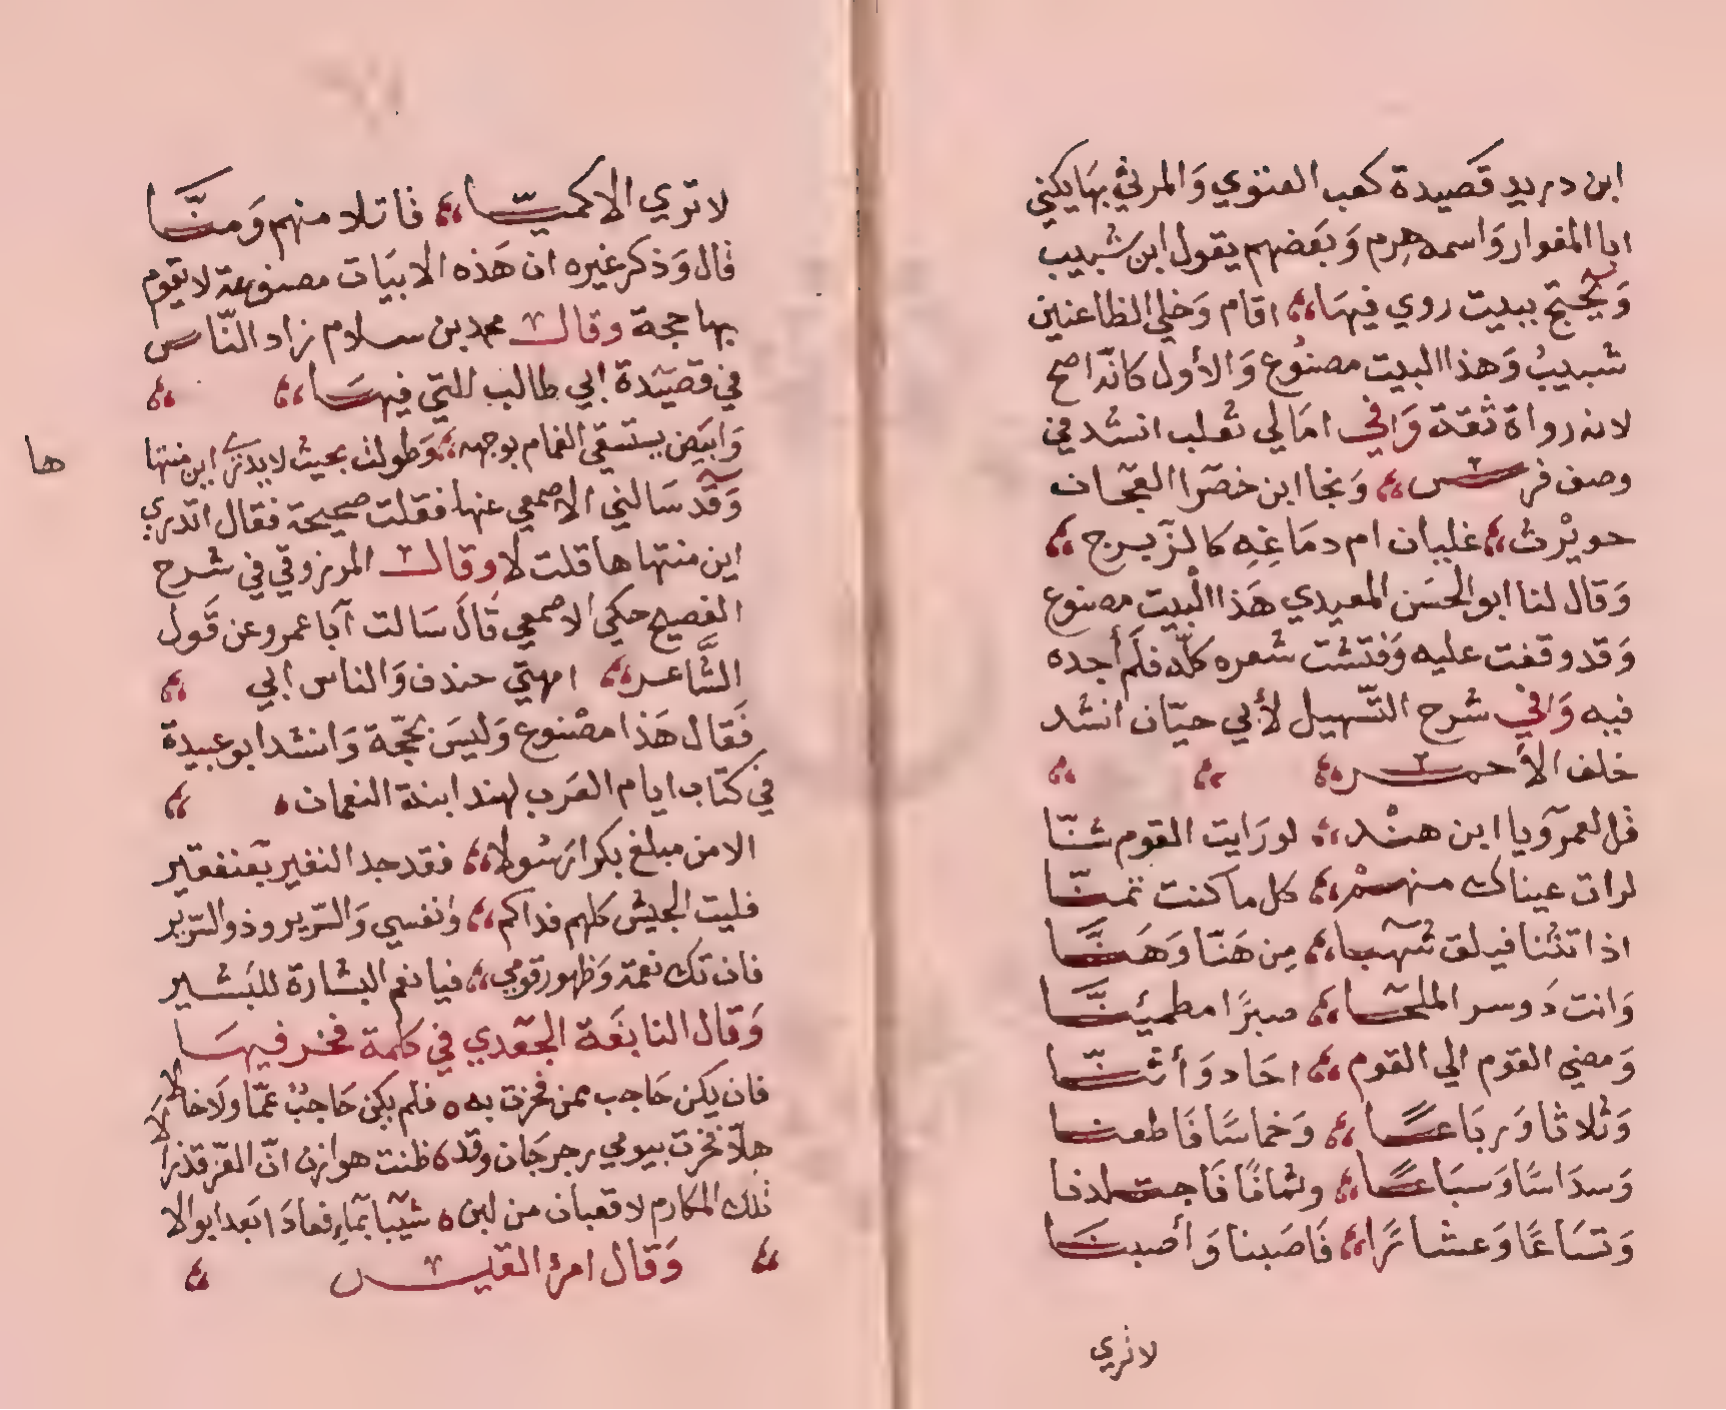 ابن دريد قَصيدة كعب الغنوي وَالمرثي بهَا يكني
ابا المغوار وَاسمه هِرم وَبَعَضهم يقول ابن شبيب
وَيحتج ببيت روي فيهَا، اقام وَخلي الظاعنين
شبيبُ وَهذا البيت مصنُوع وَالأول كانّه اصح
لانه رواة ثقة وَافي امَالي ثعلب انشد في
وصف فرس، وَنجا ابن خضرا العجان
حويْرث، غليان ام دمَاغِهِ كالزبرج،
وَقال لنا ابو الحسَن المعيدي هَذا البيت مصنوع
وَقد وقفت عليه وَفتشت شعره كلّه فلَم أجده
فيه وَافي شرح التّسهيل لأبي حيّان انشد
خلف الأحمر،
قل لعمرو يا ابن هنْد، لو رَايت القوم شنّا
لرات عيناك منهمْ، كل ما كنت تمنّا
اذا تتنا فيلق شهبا، مِن هَنّا وَهَنَّا
وَانت دَوسر الملحا، صبرًا مطمئنَّا
وَمضي القوم الي القوم، احَاد وَأثنّا
وَثلاثا وَربَاعًا، وَخماسًا فَاطعنا
وَسدَاسًا وَسبَاعًا، وثمانًا فَاجتلدنا
وَتسَاعًا وَعشارًا، فَاصَبنا وَأصبنَا
لا تري
لا تري الا كميّا، قاتلا منهم وَمنَّا
قال وَذكر غيره ان هَذه الابيَات مصنوعة لا يقوم
بها حجة وقال محمد بن سلام زاد النّاس
في قصيَدة ابي طالب التي فيهَا،
وَابيَض يستسقي الغمام بوجهه، وَطولت بحيث لا يدري اين منتها
ها
وَقَد سَالني الاصمعي عنها فقلت صحيحة فقال اتدري
اين منتهاها قلت لا وقال المرزوقي في شرح
الفصيح حكي الاصمعي قَالَ سَالت أبا عمرو عن قَول
الشَّاعر، امهتي خندف وَالناس ابي
فَقال هَذا مصْنوع وَليسَ بحجّة وَانشد ابو عبيدة
في كتاب ايام العَرب لهند ابنة النعمان
الا من مبلغ بكرا رسُولا، فقد جد النفير بعنفقير
فليت الجيش كلهم فداكم، وَنفسي وَالسّرير وذو السّرير
فان تك نعمة وَظهور قومي، فيا نعم البشارة للبَشير
وَقال النابغَة الجعدي في كلمة فخر فيهَا
فان يكن حَاجب ممن فخرت به، فلم يكن حَاجبُ عمّا ولَا خالا
هلّا فخرت بيومي رحرحَان وقد، ظنت هوازن انّ العزّ قد زالا
تلك المكارم لا قعبان من لبن، شيبا بماءٍ فعادَا بَعد ابوالا
وَقال امرؤ القيس